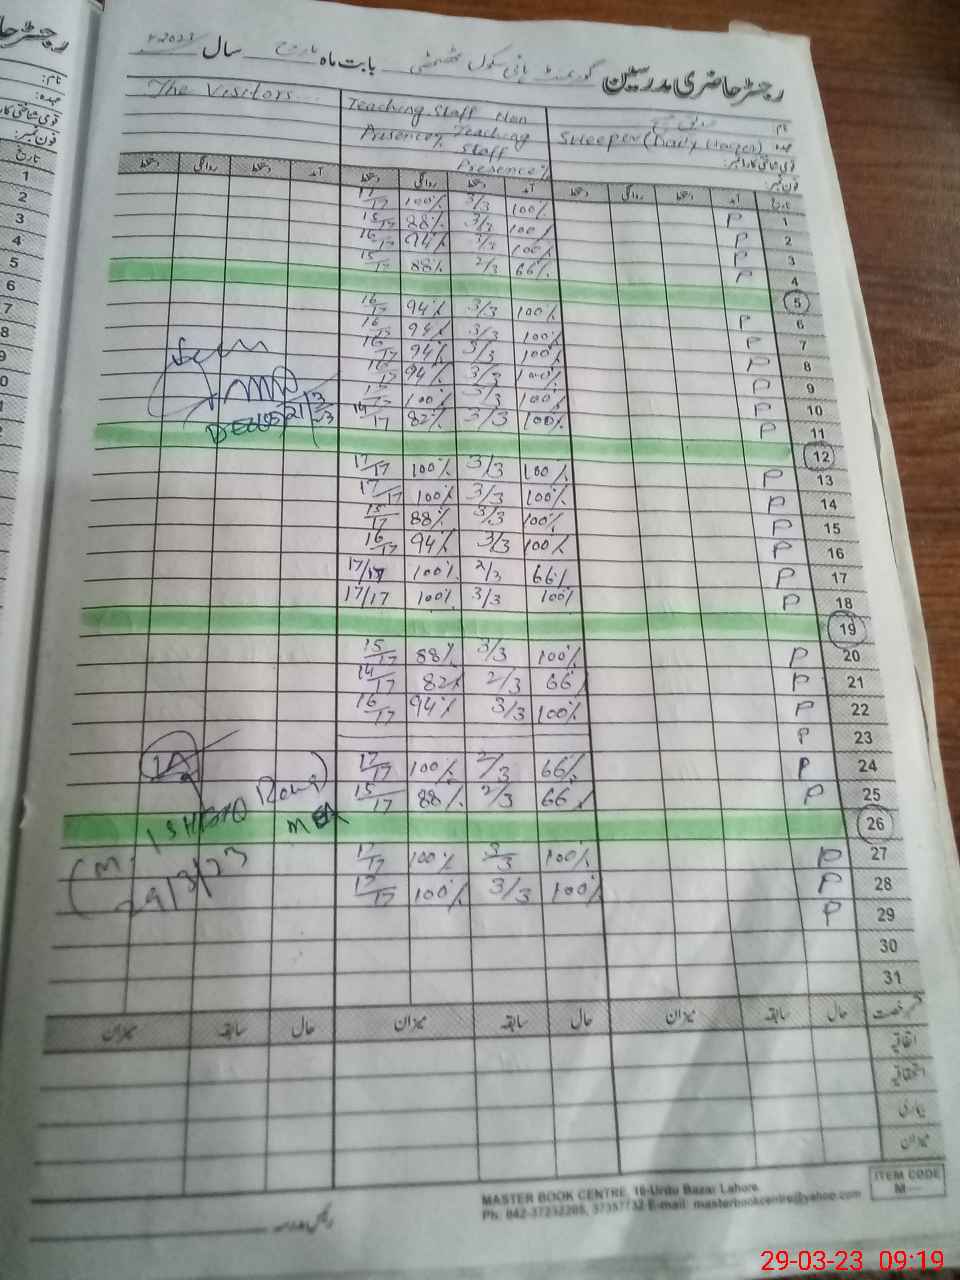 رجسٹر حاضری مدرسین گورنمنٹ ہائی سکول بابت ماہ مارچ سال 2023
نام
The Visitors... Teaching Staff Non
Presence% Teaching Sweeper (Daily Wager) عہدہ
Staff قومی شناختی کارڈ نمبر
Presence% فون نمبر
دستخط روانگی دستخط آمد دستخط روانگی دستخط آمد دستخط روانگی دستخط آمد تاریخ
17/17 100% 3/3 100% P 1
15/17 88% 3/3 100% P 2
16/17 94% 3/3 100% P 3
15/17 88% 2/3 66% P 4
5
16/17 94% 3/3 100% P 6
16/17 94% 3/3 100% P 7
16/17 94% 3/3 100% P 8
16/17 94% 3/3 100% P 9
17/17 100% 3/3 100% P 10
14/17 82% 3/3 100% P 11
12
17/17 100% 3/3 100% P 13
17/17 100% 3/3 100% P 14
15/17 88% 3/3 100% P 15
16/17 94% 3/3 100% P 16
17/17 100% 2/3 66% P 17
17/17 100% 3/3 100% P 18
19
15/17 88% 3/3 100% P 20
14/17 82% 2/3 66% P 21
16/17 94% 3/3 100% P 22
P 23
17/17 100% 2/3 66% P 24
15/17 88% 2/3 66% P 25
MEA 26
17/17 100% 3/3 100% P 27
29/3/23 17/17 100% 3/3 100% P 28
P 29
30
31
میزان سابقہ حال میزان سابقہ حال میزان سابقہ حال قسم رخصت
اتفاقیہ
استحقاقیہ
بیماری
میزان
رئیس مدرسہ
MASTER BOOK CENTRE, 16-Urdu Bazar Lahore.
Ph: 042-37232205, 37357732 E-mail: masterbookcentre@yahoo.com
ITEM CODE
M
29-03-23 09:19
رجسٹر حا
نام:
عہدہ:
قومی شناختی کار
فون نمبر:
تاریخ
1
2
3
4
5
6
7
8